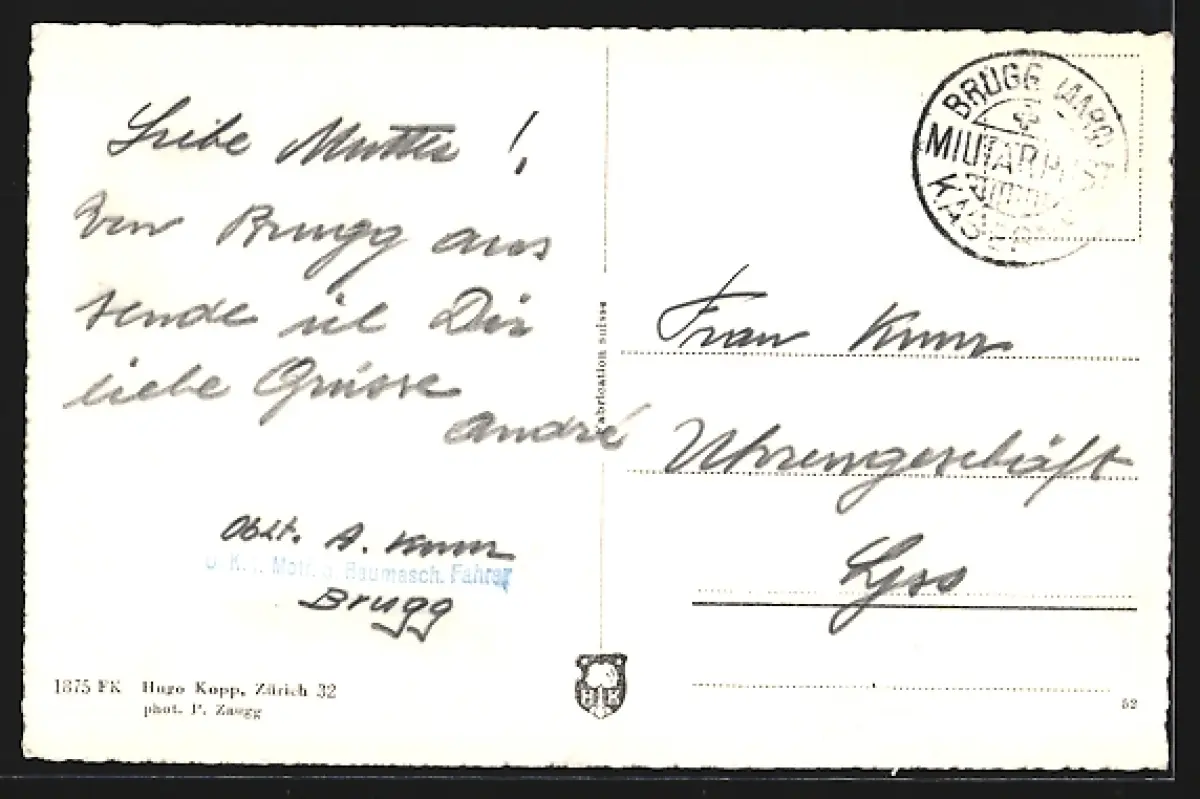 Liebe Mutti !
Von Brugg aus
sende ich Dir
liebe Grüsse
André
Oblt. A. Kunz
Motf. u. Baumasch. Fahrer
Brugg
1875 FK Hugo Kopp, Zürich 32
phot. P. Zaugg
Fabrication suisse
HK
BRUGG (AARG
MILITÄR
KASER
Frau Kunz
Uhrengeschäft
Lyss
52